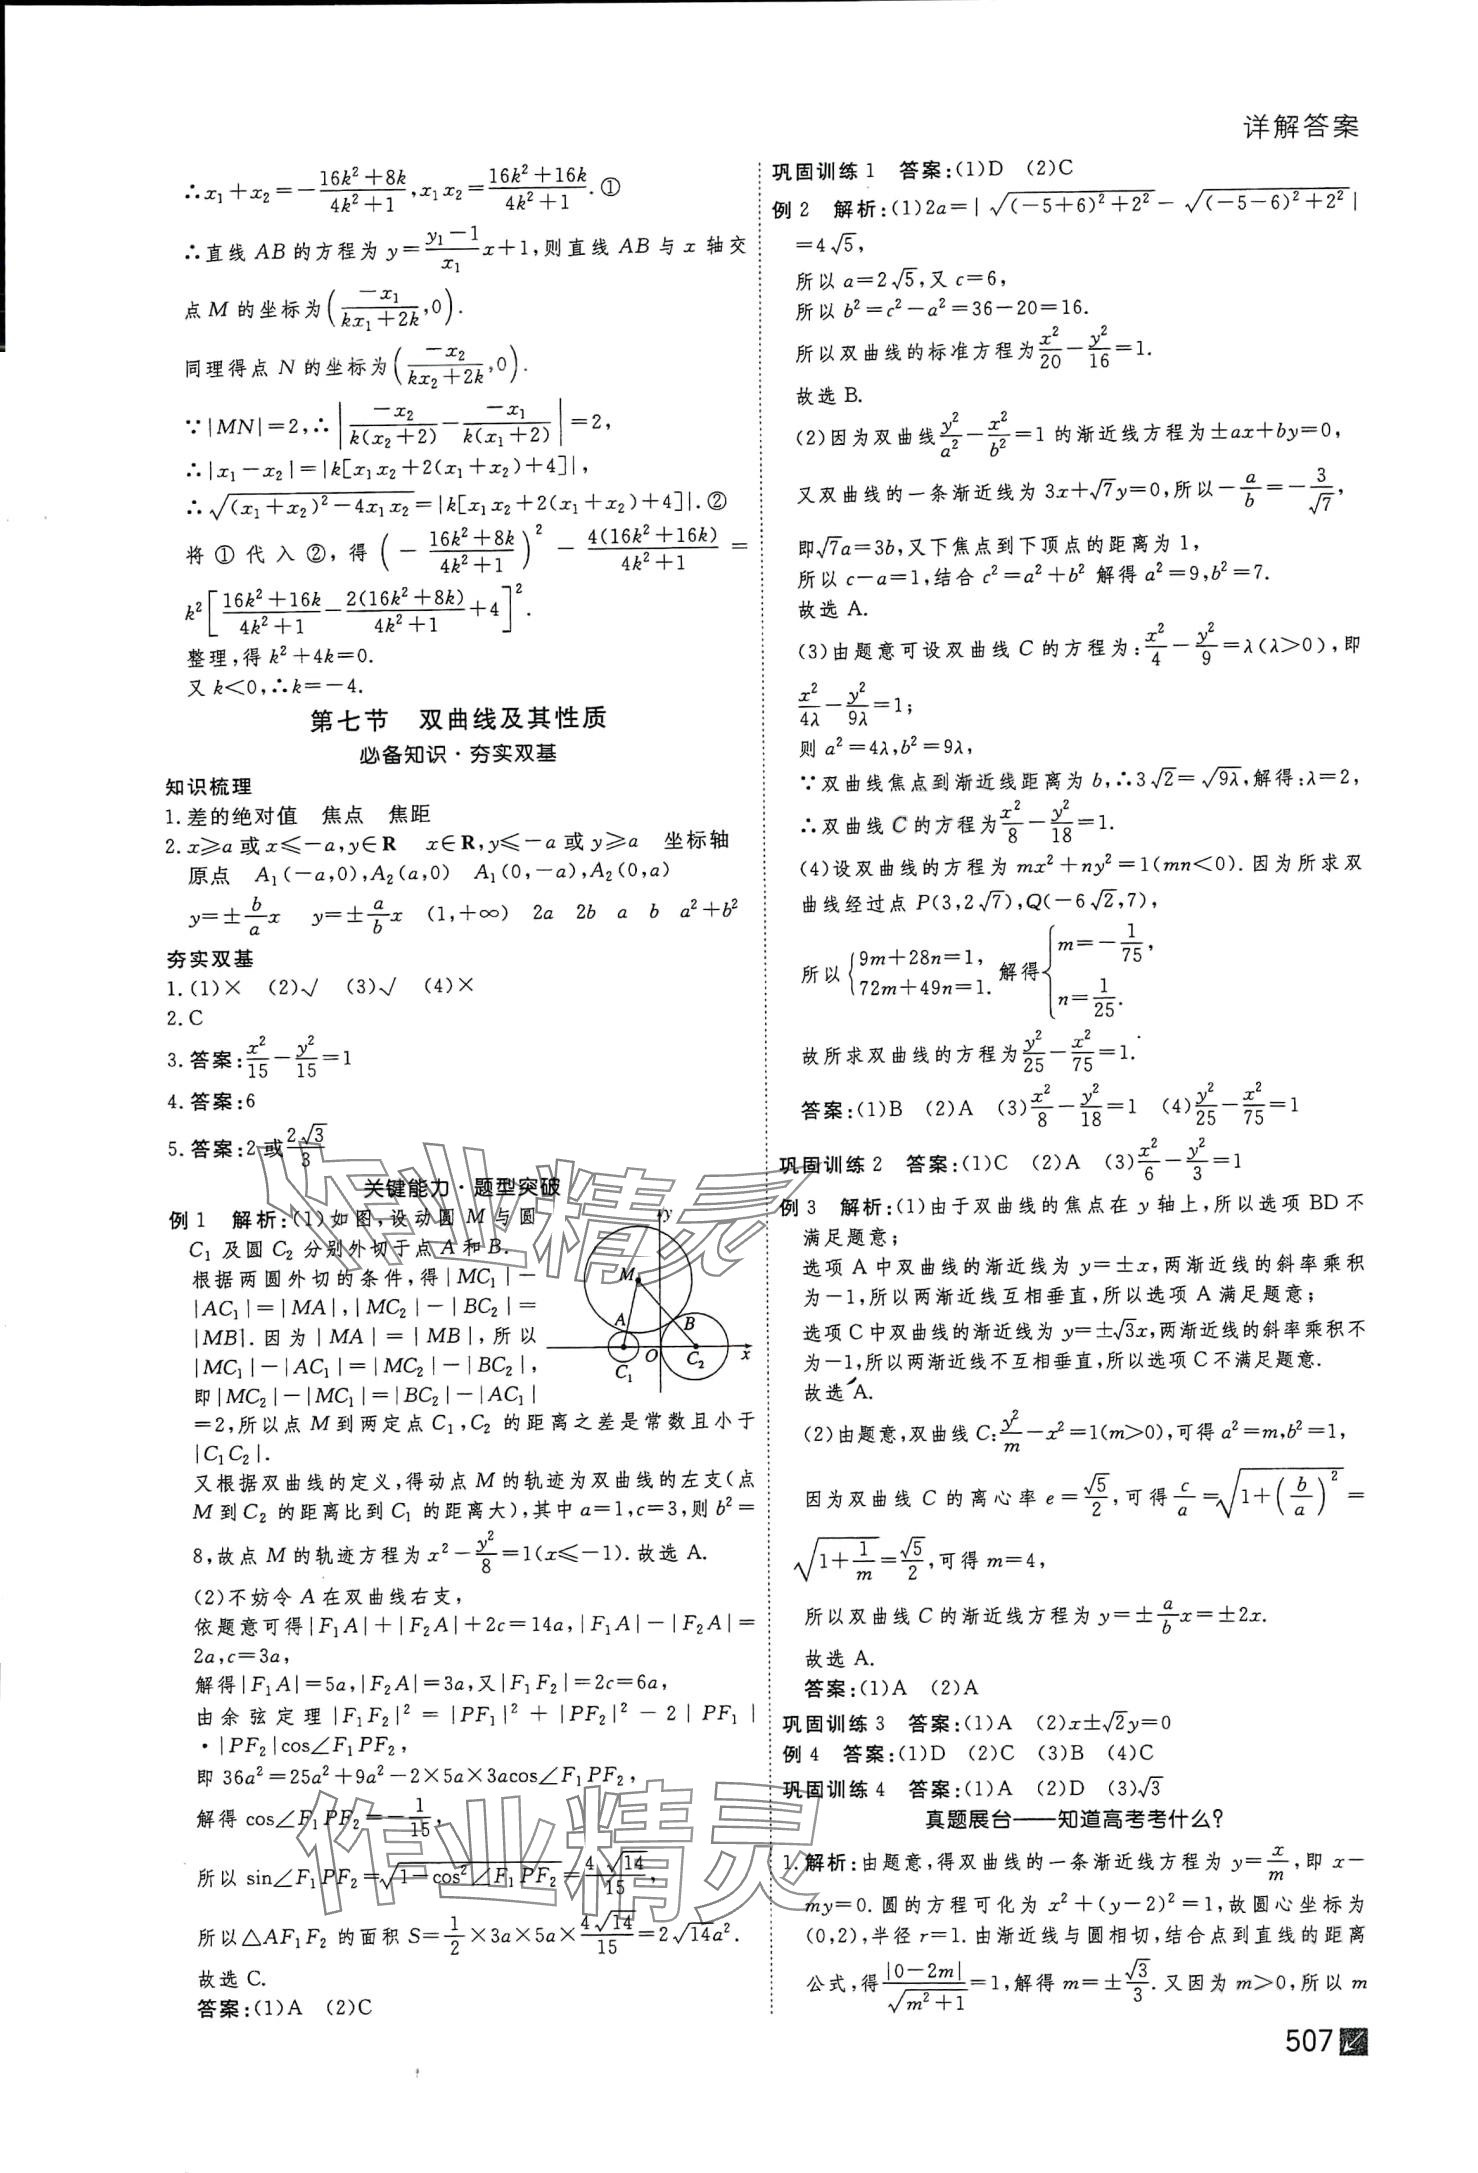 详解答案
∴x₁+x₂=-(16k²+8k)/(4k²+1),x₁x₂=(16k²+16k)/(4k²+1).①
∴直线 AB 的方程为 y=(y₁-1)/x₁ x+1,则直线 AB 与 x 轴交
点 M 的坐标为(-x₁/(kx₁+2k),0).
同理得点 N 的坐标为(-x₂/(kx₂+2k),0).
∵|MN|=2,∴|-x₂/(k(x₂+2))-(-x₁)/(k(x₁+2))|=2,
∴|x₁-x₂|=|k[x₁x₂+2(x₁+x₂)+4]|,
∴√((x₁+x₂)²-4x₁x₂)=|k[x₁x₂+2(x₁+x₂)+4]|.②
将①代入②,得(-(16k²+8k)/(4k²+1))²-4(16k²+16k)/(4k²+1)=
k²[(16k²+16k)/(4k²+1)-2(16k²+8k)/(4k²+1)+4]².
整理,得 k²+4k=0.
又 k<0,∴k=-4.
第七节 双曲线及其性质
必备知识·夯实双基
知识梳理
1.差的绝对值 焦点 焦距
2.x≥a或x≤-a,y∈R x∈R,y≤-a或y≥a 坐标轴
原点 A₁(-a,0),A₂(a,0) A₁(0,-a),A₂(0,a)
y=±b/a x y=±a/b x (1,+∞) 2a 2b a b a²+b²
夯实双基
1.(1)× (2)√ (3)√ (4)×
2.C
3.答案:x²/15-y²/15=1
4.答案:6
5.答案:2或2√3/3
关键能力·题型突破
例1 解析:(1)如图,设动圆 M 与圆
C₁ 及圆 C₂ 分别外切于点 A 和 B.
根据两圆外切的条件,得|MC₁|-
|AC₁|=|MA|,|MC₂|-|BC₂|=
|MB|.因为|MA|=|MB|,所以
|MC₁|-|AC₁|=|MC₂|-|BC₂|,
即|MC₂|-|MC₁|=|BC₂|-|AC₁|
y
M
A
B
C₁
O
C₂
x
=2,所以点 M 到两定点 C₁,C₂ 的距离之差是常数且小于
|C₁C₂|.
又根据双曲线的定义,得动点 M 的轨迹为双曲线的左支(点
M 到 C₂ 的距离比到 C₁ 的距离大),其中 a=1,c=3,则 b²=
8,故点 M 的轨迹方程为 x²-y²/8=1(x≤-1).故选 A.
(2)不妨令 A 在双曲线右支,
依题意可得|F₁A|+|F₂A|+2c=14a,|F₁A|-|F₂A|=
2a,c=3a,
解得|F₁A|=5a,|F₂A|=3a,又|F₁F₂|=2c=6a,
由余弦定理|F₁F₂|²=|PF₁|²+|PF₂|²-2|PF₁|
·|PF₂|cos∠F₁PF₂,
即 36a²=25a²+9a²-2×5a×3acos∠F₁PF₂,
解得 cos∠F₁PF₂=-1/15,
所以 sin∠F₁PF₂=√(1-cos²∠F₁PF₂)=4√14/15,
所以△AF₁F₂ 的面积 S=1/2×3a×5a×4√14/15=2√14a².
故选 C.
答案:(1)A (2)C
巩固训练1 答案:(1)D (2)C
例2 解析:(1)2a=|√((-5+6)²+2²)-√((-5-6)²+2²)|
=4√5,
所以 a=2√5,又 c=6,
所以 b²=c²-a²=36-20=16.
所以双曲线的标准方程为x²/20-y²/16=1.
故选 B.
(2)因为双曲线y²/a²-x²/b²=1的渐近线方程为±ax+by=0,
又双曲线的一条渐近线为 3x+√7y=0,所以-a/b=-3/√7,
即√7a=3b,又下焦点到下顶点的距离为 1,
所以 c-a=1,结合 c²=a²+b² 解得 a²=9,b²=7.
故选 A.
(3)由题意可设双曲线 C 的方程为:x²/4-y²/9=λ(λ>0),即
x²/4λ-y²/9λ=1;
则 a²=4λ,b²=9λ,
∵双曲线焦点到渐近线距离为 b,∴3√2=√(9λ),解得:λ=2,
∴双曲线 C 的方程为x²/8-y²/18=1.
(4)设双曲线的方程为 mx²+ny²=1(mn<0).因为所求双
曲线经过点 P(3,2√7),Q(-6√2,7),
所以{9m+28n=1, 72m+49n=1. 解得{m=-1/75, n=1/25.
故所求双曲线的方程为y²/25-x²/75=1.
答案:(1)B (2)A (3)x²/8-y²/18=1 (4)y²/25-x²/75=1
巩固训练2 答案:(1)C (2)A (3)x²/6-y²/3=1
例3 解析:(1)由于双曲线的焦点在 y 轴上,所以选项 BD 不
满足题意;
选项 A 中双曲线的渐近线为 y=±x,两渐近线的斜率乘积
为-1,所以两渐近线互相垂直,所以选项 A 满足题意;
选项 C 中双曲线的渐近线为 y=±√3x,两渐近线的斜率乘积不
为-1,所以两渐近线不互相垂直,所以选项 C 不满足题意.
故选 A.
(2)由题意,双曲线 C:y²/m-x²=1(m>0),可得 a²=m,b²=1,
因为双曲线 C 的离心率 e=√5/2,可得c/a=√(1+(b/a)²)=
√(1+1/m)=√5/2,可得 m=4,
所以双曲线 C 的渐近线方程为 y=±a/b x=±2x.
故选 A.
答案:(1)A (2)A
巩固训练3 答案:(1)A (2)x±√2y=0
例4 答案:(1)D (2)C (3)B (4)C
巩固训练4 答案:(1)A (2)D (3)√3
真题展台——知道高考考什么?
1.解析:由题意,得双曲线的一条渐近线方程为 y=x/m,即 x-
my=0.圆的方程可化为 x²+(y-2)²=1,故圆心坐标为
(0,2),半径 r=1.由渐近线与圆相切,结合点到直线的距离
公式,得|0-2m|/√(m²+1)=1,解得 m=±√3/3.又因为 m>0,所以 m
507
作业精灵
作业精灵